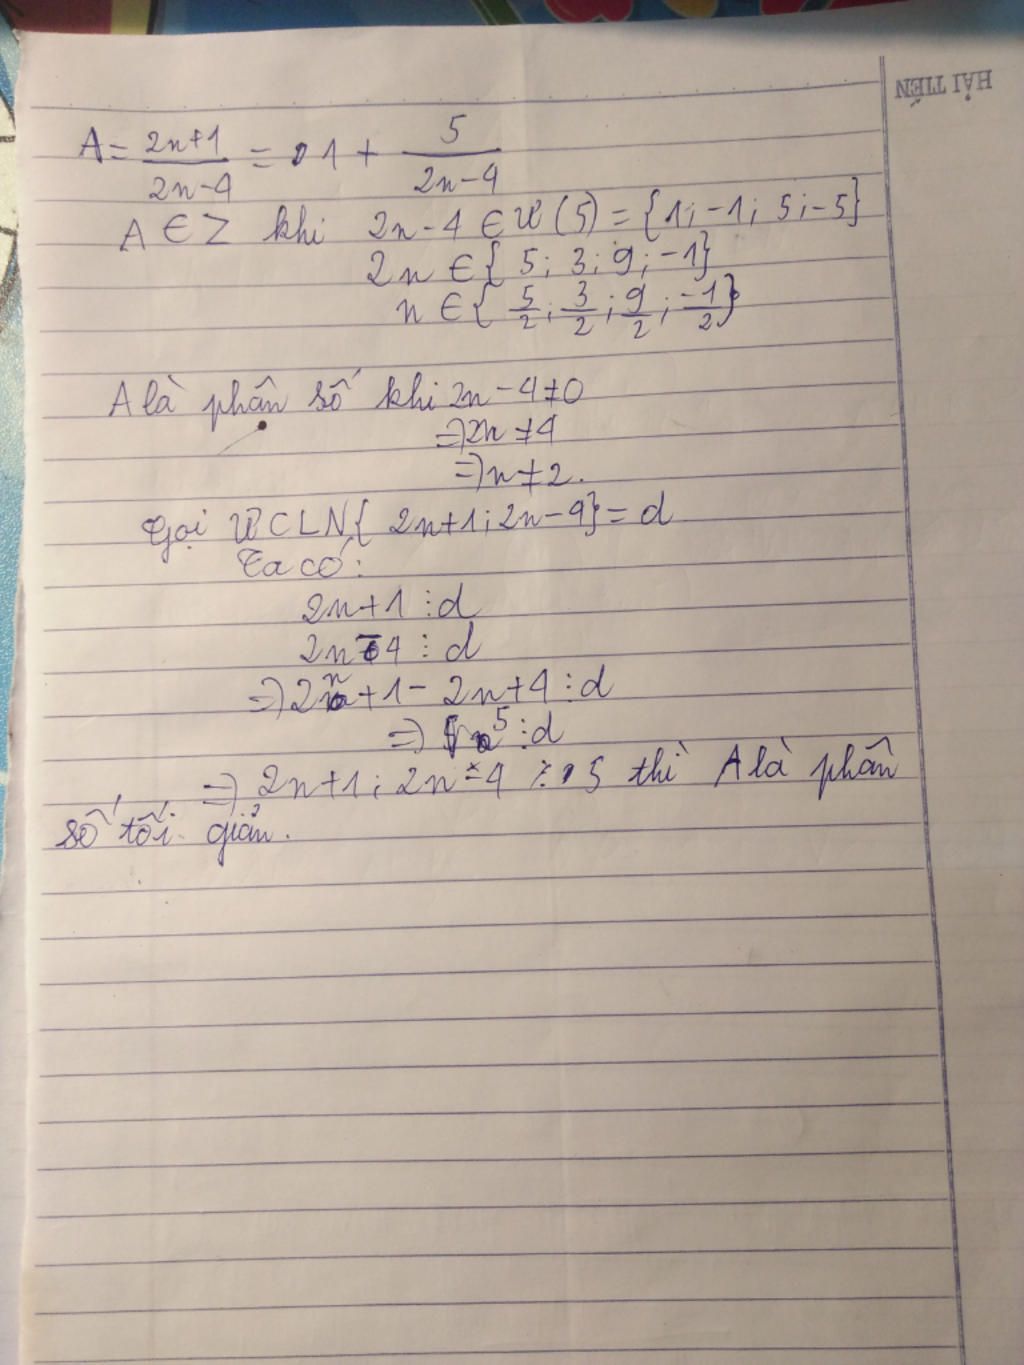 HẢI TIẾN
A = \frac{2n+1}{2n-4} = 1 + \frac{5}{2n-4}
A ∈ Z khi 2n-4 ∈ Ư(5) = {1; -1; 5; -5}
2n ∈ {5; 3; 9; -1}
n ∈ {\frac{5}{2}; \frac{3}{2}; \frac{9}{2}; \frac{-1}{2}}
A là phân số khi 2n-4≠0
=> 2n ≠ 4
=> n ≠ 2.
Gọi ƯCLN{2n+1; 2n-4} = d
Ta có:
2n+1 ⋮ d
2n-4 ⋮ d
=> 2n+1 - 2n+4 ⋮ d
=> 5 ⋮ d
=> 2n+1; 2n-4 ⋮̸ 5 thì A là phân
số tối giản.